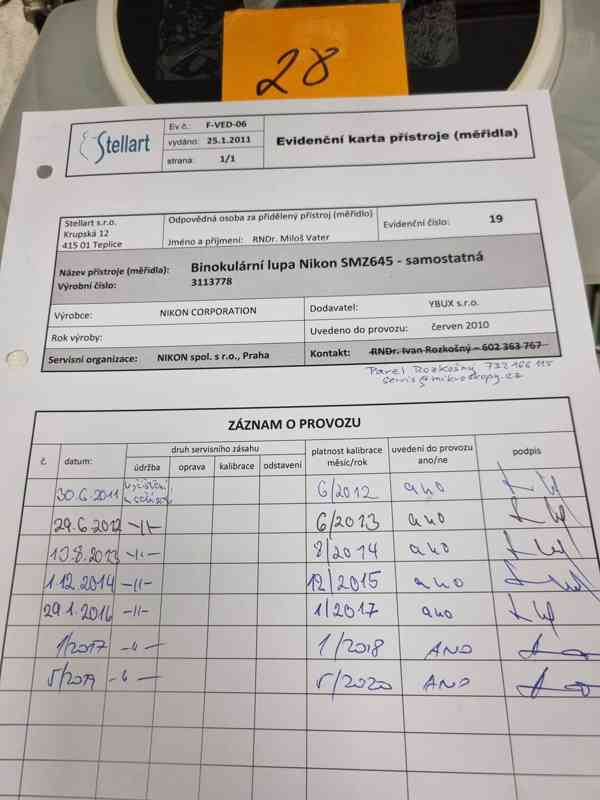 28
Stellart
Ev č.: F-VED-06
vydáno: 25.1.2011
strana: 1/1
Evidenční karta přístroje (měřidla)
Stellart s.r.o.
Krupská 12
415 01 Teplice
Odpovědná osoba za přidělený přístroj (měřidlo)
Jméno a příjmení: RNDr. Miloš Vater
Evidenční číslo: 19
Název přístroje (měřidla): Binokulární lupa Nikon SMZ645 - samostatná
Výrobní číslo: 3113778
Výrobce: NIKON CORPORATION
Dodavatel: YBUX s.r.o.
Rok výroby:
Uvedeno do provozu: červen 2010
Servisní organizace: NIKON spol. s r.o., Praha
Kontakt: RNDr. Ivan Rozkošný – 602 363 767
Pavel Rozkošný 732 166 115
servis@mikroskopy.cz
ZÁZNAM O PROVOZU
č. datum: druh servisního zásahu platnost kalibrace měsíc/rok uvedení do provozu ano/ne podpis
údržba oprava kalibrace odstavení
30.6.2011 vyčištění 6/2012 ano
29.6.2012 -||- 6/2013 ano
13.8.2013 -||- 8/2014 ano
1.12.2014 -||- 12/2015 ano
29.1.2016 -||- 1/2017 ano
1/2017 -"- 1/2018 ANO
5/2019 -"- 5/2020 ANO